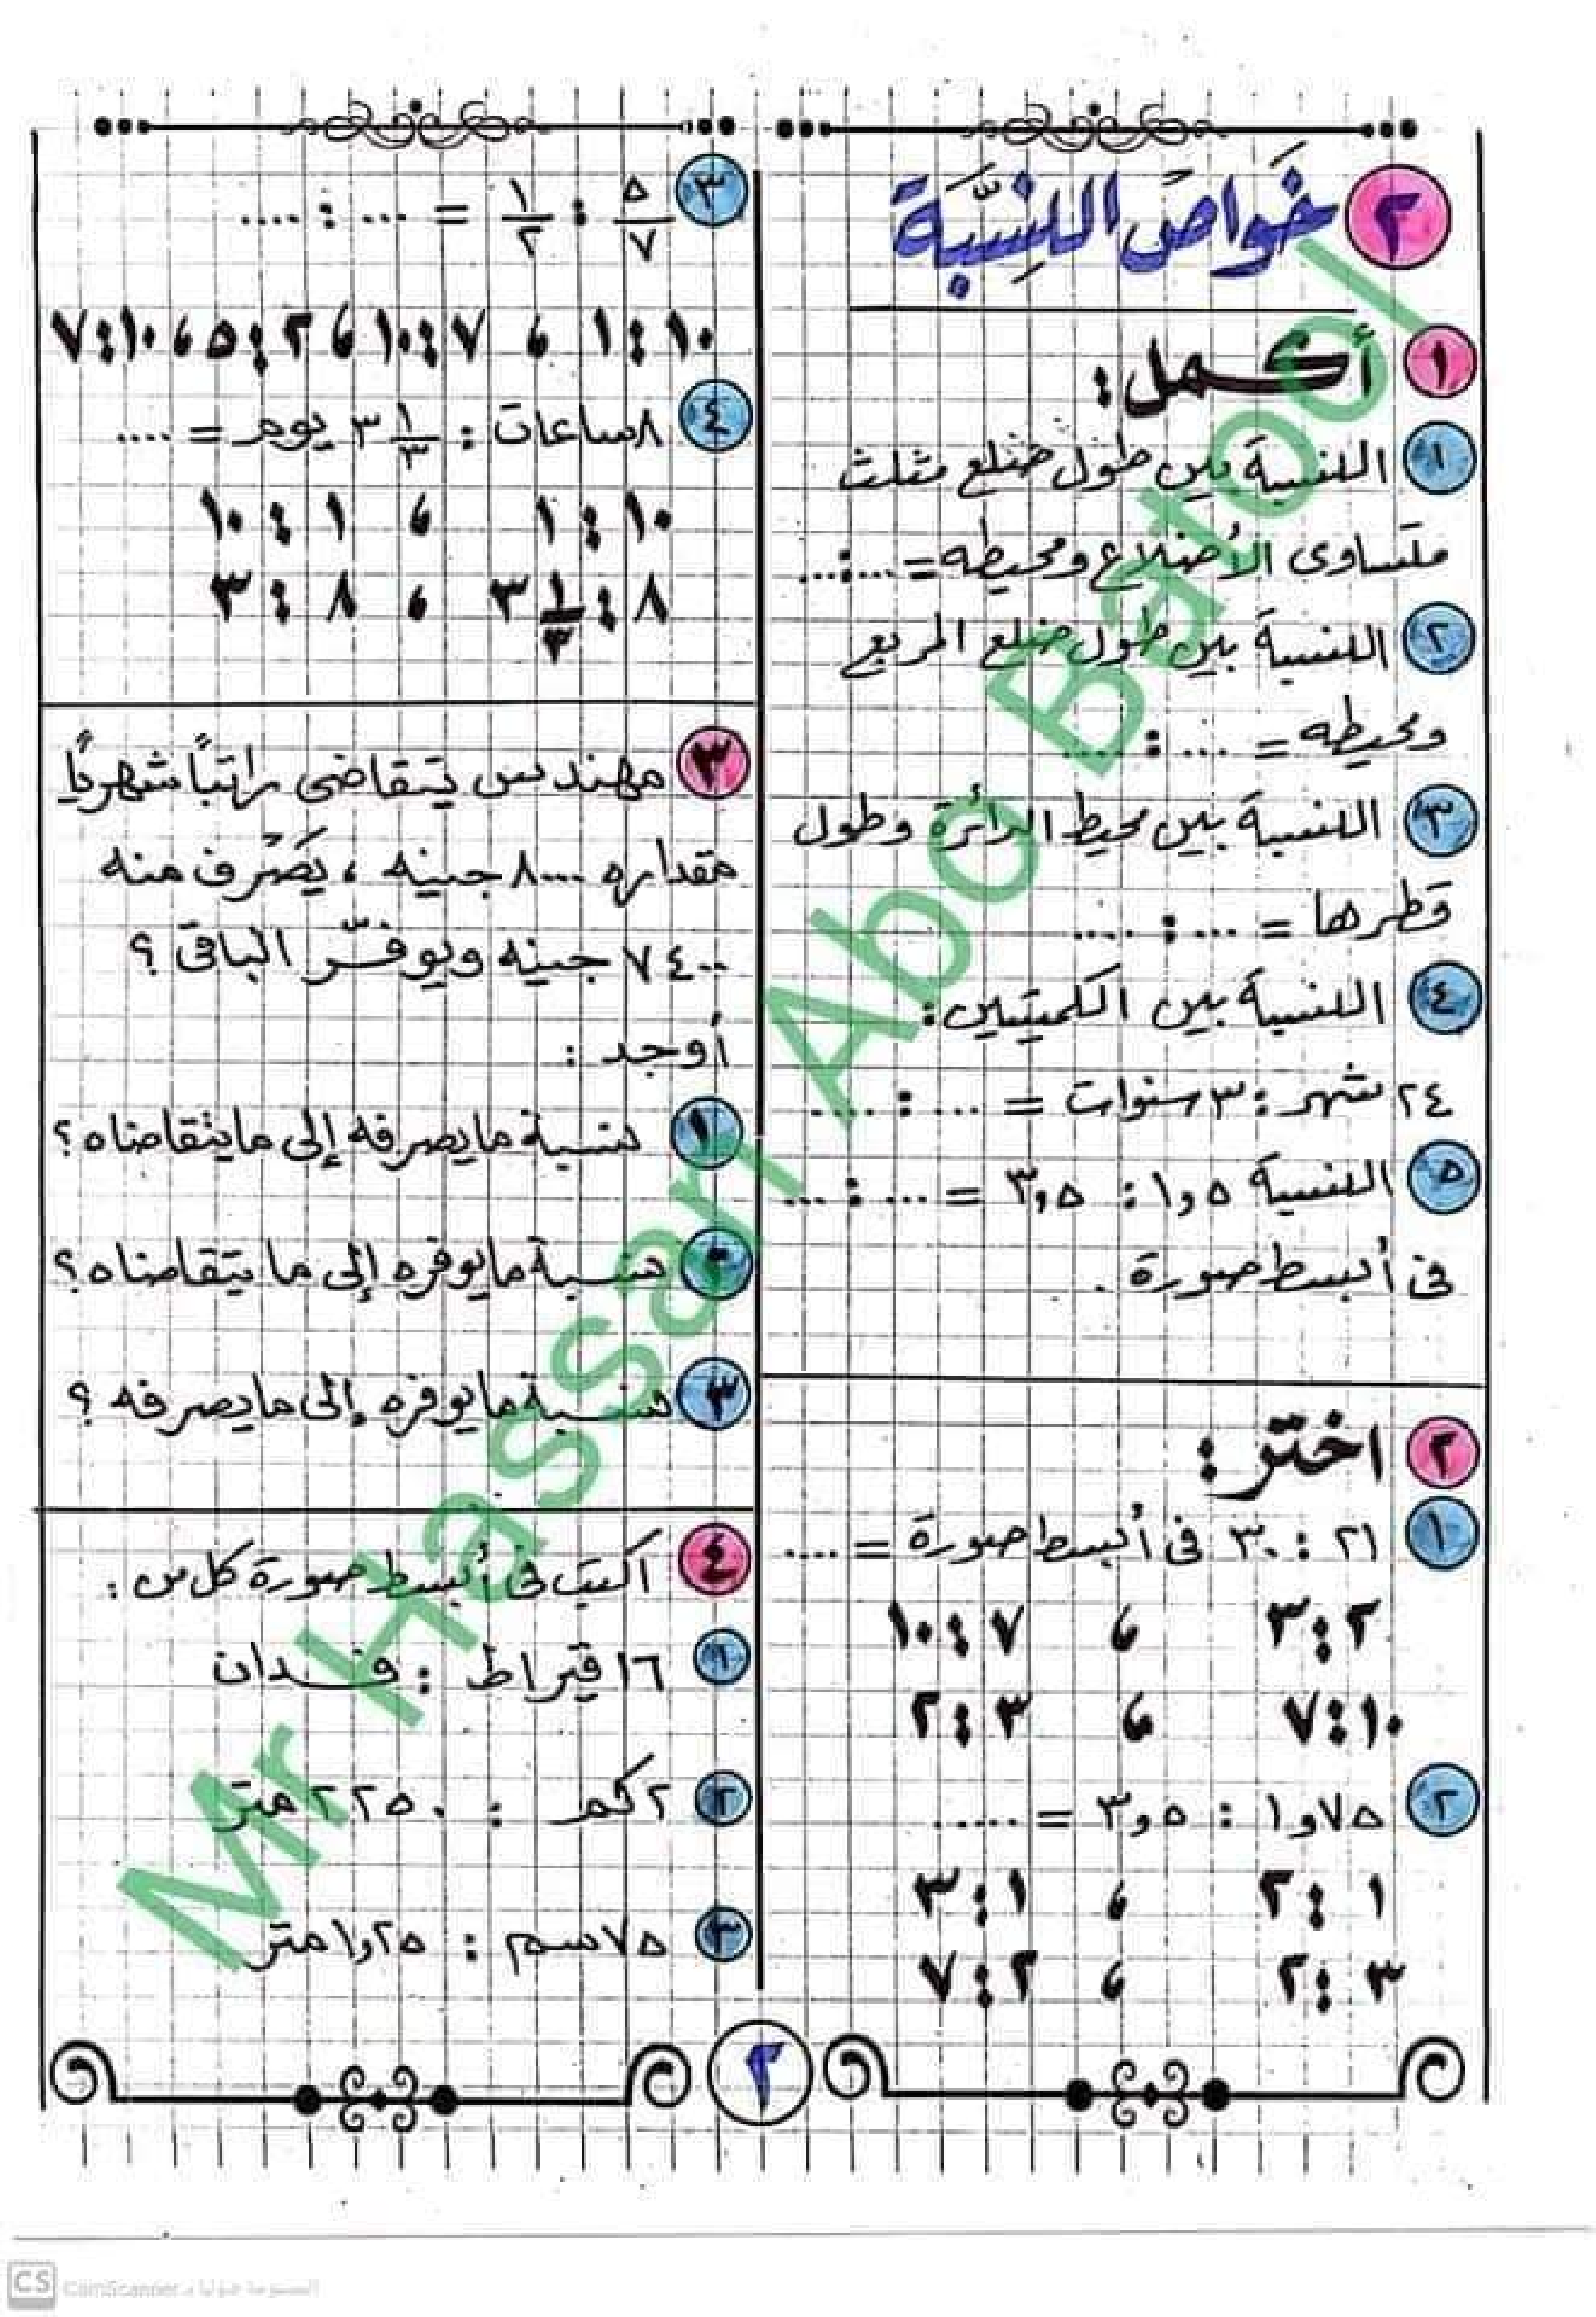 ٢ خَواصُ النِسبَّة
١ أكمل:
١ النسبة بين طول ضلع مثلث
متساوى الأضلاع ومحيطه = ...:...
٢ النسبة بين طول ضلع المربع
ومحيطه = ... : ...
٣ النسبة بين محيط الدائرة وطول
قطرها = ... : ....
٤ النسبة بين الكميتين:
٢٤ شهر : ٣ سنوات = ... : ...
٥ النسبة ١,٥ : ٣,٥ = ... : ...
فى أبسط صورة .
٢ اختر :
١ ٢١ : ٣٠ فى أبسط صورة = ....
٢ : ٣ ، ٧ : ١٠
١٠ : ٧ ، ٣ : ٢
٢ ١,٧٥ : ٣,٥ = .....
١ : ٢ ، ١ : ٣
٣ : ٢ ، ٢ : ٧
٣ ٥/٧ : ١/٢ = ... : ....
١٠ : ١ ، ٧ : ١٠ ، ٢ : ٥ ، ١٠ : ٧
٤ ٨ ساعات : ٣ ١/٣ يوم = ....
١٠ : ١ ، ١ : ١٠
٨ : ٣ ١/٣ ، ٨ : ٣
٣ مهندس يتقاضى راتباً شهرياً
مقداره ٨٠٠٠ جنيه ، يَصْرف منه
٧٤٠٠ جنيه ويوفّر الباقى ؟
أوجد :
١ نسبة ما يصرفه إلى ما يتقاضاه ؟
٢ نسبة ما يوفره إلى ما يتقاضاه ؟
٣ نسبة ما يوفره إلى ما يصرفه ؟
٤ اكتب فى أبسط صورة كل من :
١ ١٦ قيراط : فدان
٢ ٢ كم : ٢٢٥٠ متر
٣ ٧٥ سم : ١,٢٥ متر
٢
Mr Hassan Abo Batool
CS CamScanner الممسوحة ضوئيا بـ